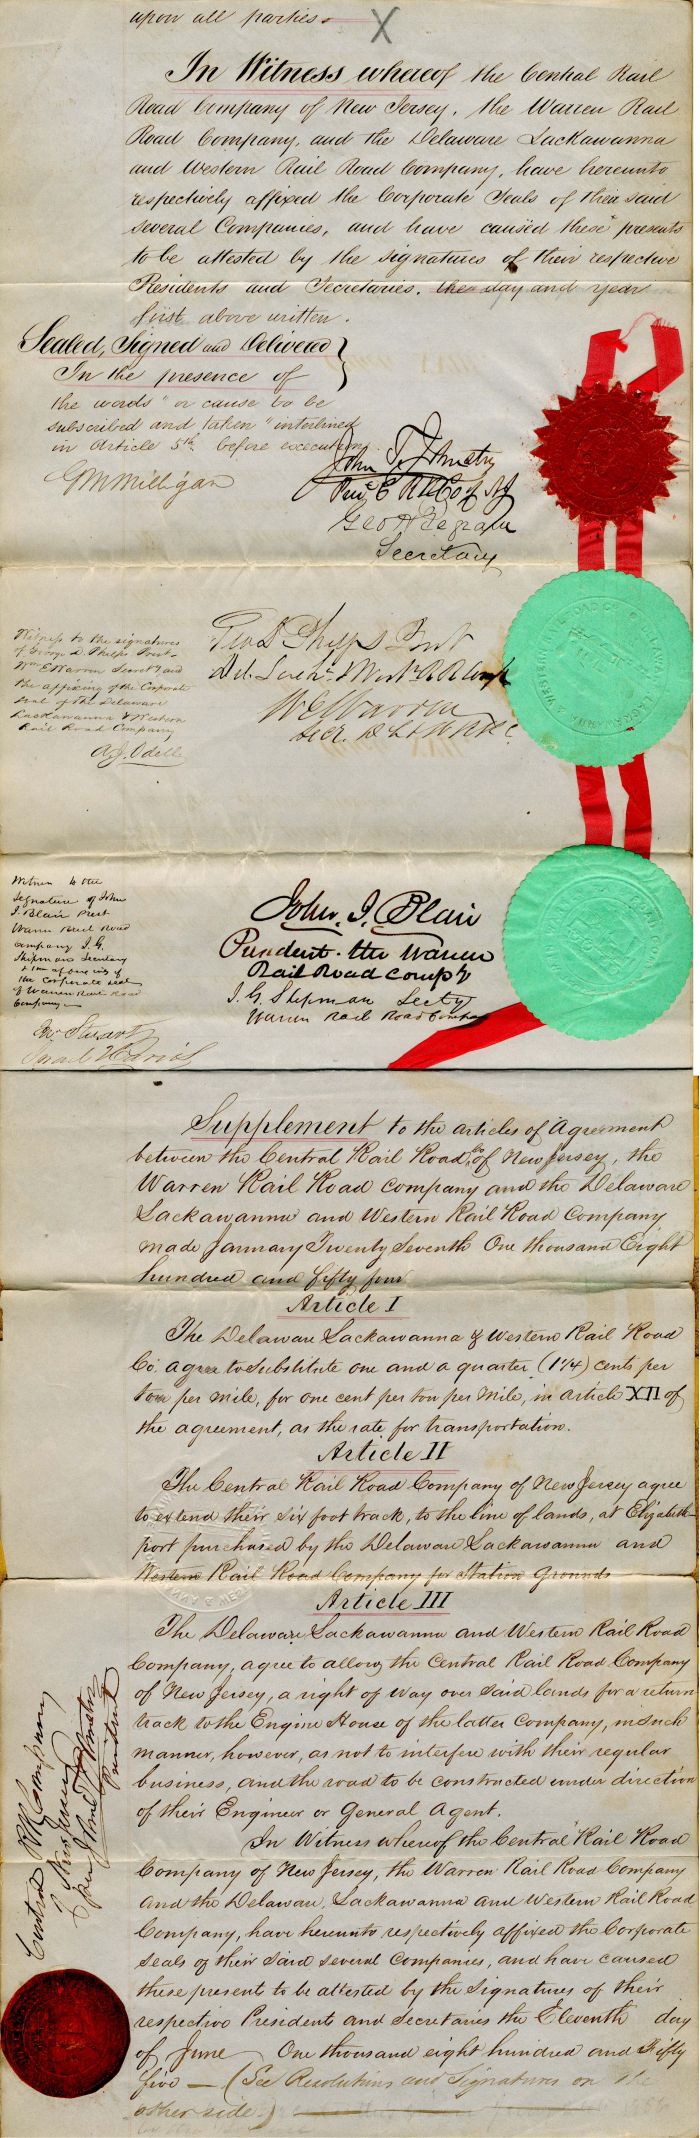 upon all parties.
X
In Witness whereof the Central Rail
Road Company of New Jersey, the Warren Rail
Road Company, and the Delaware Lackawanna
and Western Rail Road Company, have hereunto
respectively affixed the Corporate Seals of their said
several Companies, and have caused these presents
to be attested by the signatures of their respective
Presidents and Secretaries, the day and year
first above written.
Sealed, Signed and Delivered
In the presence of
the words "or cause to be
subscribed and taken" interlined
in Article 5th before execution
G M Milligan
John T. Johnston
Pres C R R Co of NJ
Geo H Pegram
Secretary
Witness to the signatures
of George D. Phelps Prest
Wm E Warren Secrety and
the affixing of the Corporate
seal of the Delaware
Lackawanna & Western
Rail Road Company
A. J. Odell
Geo D Phelps Prest
Del. Lack. & West. R R Comp
W E Warren
Secr. D L & W R R C.
Witness to the
signature of John
I. Blair Prest
Warren Rail Road
Company J. G.
Shipman Secretary
& the affixing of
the corporate seal
of Warren Rail Road
Company
John. I. Blair
President the Warren
Rail Road Compy
J. G. Shipman Secty
Warren Rail Road Company
Supplement to the articles of Agreement
between the Central Rail Road Co of New Jersey, the
Warren Rail Road Company and the Delaware
Lackawanna and Western Rail Road Company
made January Twenty Seventh One thousand Eight
hundred and fifty four
Article I
The Delaware Lackawanna & Western Rail Road
Co. agree to substitute one and a quarter (1 1/4) cents per
ton per mile, for one cent per ton per mile, in article XII of
the agreement, as the rate for transportation.
Article II
The Central Rail Road Company of New Jersey agree
to extend their six foot track, to the line of lands, at Elizabeth-
port purchased by the Delaware Lackawanna and
Western Rail Road Company for Station Grounds
Article III
The Delaware Lackawanna and Western Rail Road
Company, agree to allow the Central Rail Road Company
of New Jersey, a right of way over said lands for a return
track to the Engine House of the latter Company, in such
manner, however, as not to interfere with their regular
business, and the road to be constructed under direction
of their Engineer or General Agent.
In Witness whereof the Central Rail Road
Company of New Jersey, the Warren Rail Road Company
and the Delaware, Lackawanna and Western Rail Road
Company, have hereunto respectively affixed the Corporate
seals of their said several Companies, and have caused
these present to be attested by the signatures of their
respective President and Secretaries the Eleventh day
of June One thousand eight hundred and Fifty
five — (See Resolutions and Signatures on the
other side.)
Central RR Company
of New Jersey
by John T Johnston
President